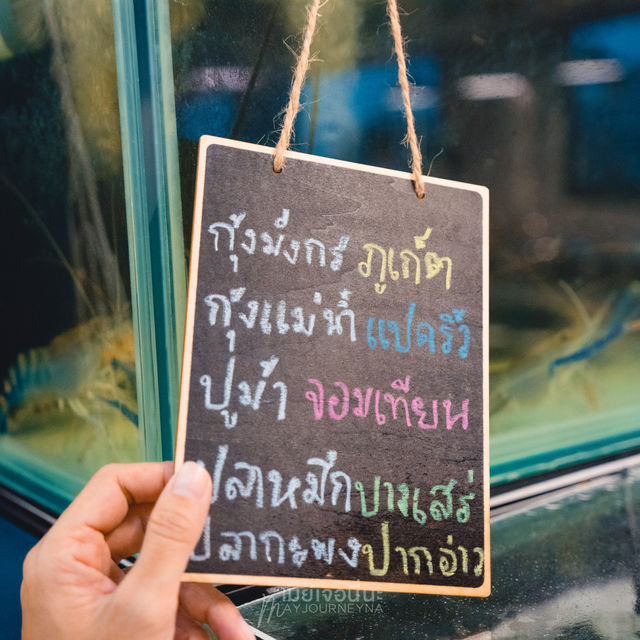 กุ้งมังกร ภูเก็ต
กุ้งแม่น้ำ แปดริ้ว
ปูม้า จอมเทียน
ปลาหมึก บางเสร่
ปลากะพง ปากอ่าว
เมียเจอนี่นะ
MAYJOURNEYNA